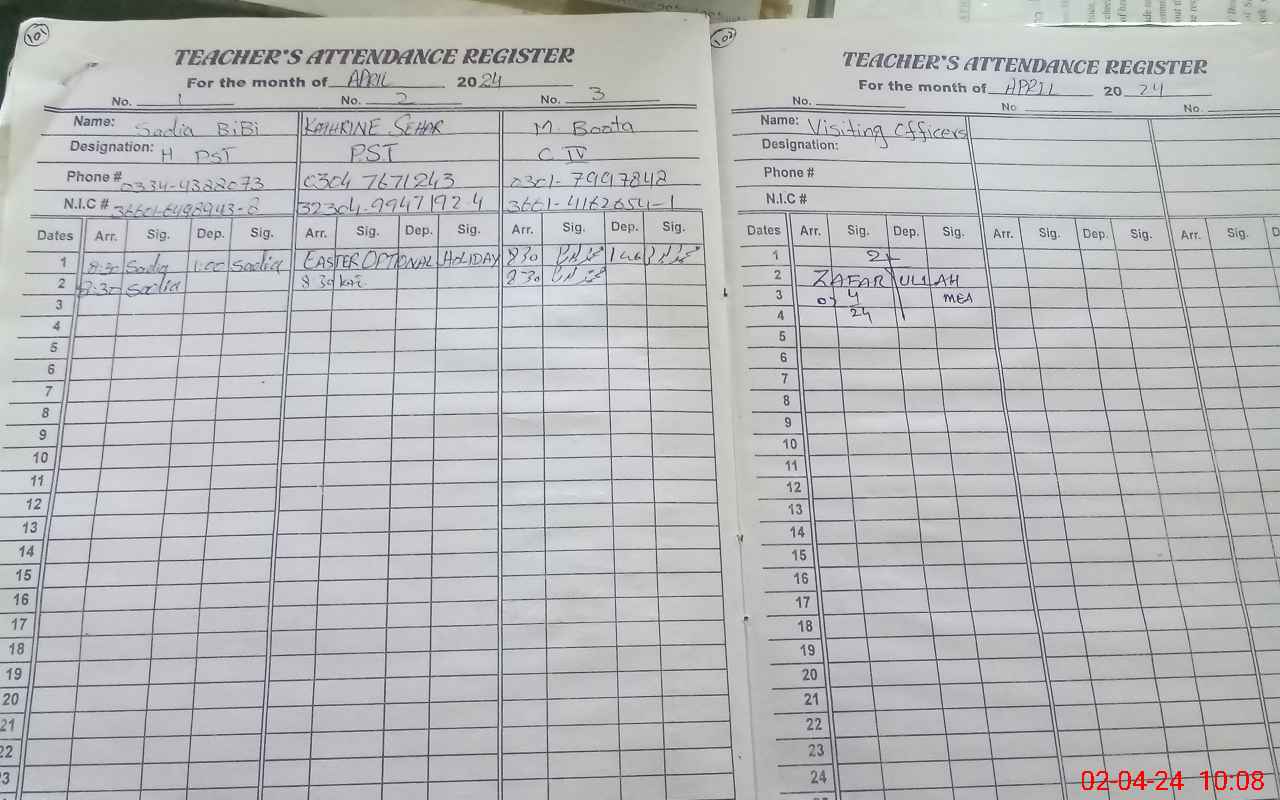 101
TEACHER'S ATTENDANCE REGISTER
For the month of APRIL 2024
No. 1 No. 2 No. 3
Name: Sadia BiBi KATHRINE SEHAR M. Boota
Designation: H PST PST C IV
Phone # 0334-4322073 0304 7671243 0301-7997842
N.I.C # 32304-9947192-4 3661-4162654-1
Dates Arr. Sig. Dep. Sig. Arr. Sig. Dep. Sig. Arr. Sig. Dep. Sig.
1 8:30 Sadia 1:00 Sadia EASTER OPTIONAL HOLIDAY 830
2 8:30 Sadia 8 30 830
3
4
5
6
7
8
9
10
11
12
13
14
15
16
17
18
19
20
21
22
23
102
TEACHER'S ATTENDANCE REGISTER
For the month of APRIL 2024
No. No. No.
Name: Visiting Officers
Designation:
Phone #
N.I.C #
Dates Arr. Sig. Dep. Sig. Arr. Sig. Dep. Sig. Arr. Sig. D
1
2 ZAFAR ULLAH
3 4 MEA
4 24
5
6
7
8
9
10
11
12
13
14
15
16
17
18
19
20
21
22
23
24
02-04-24 10:08